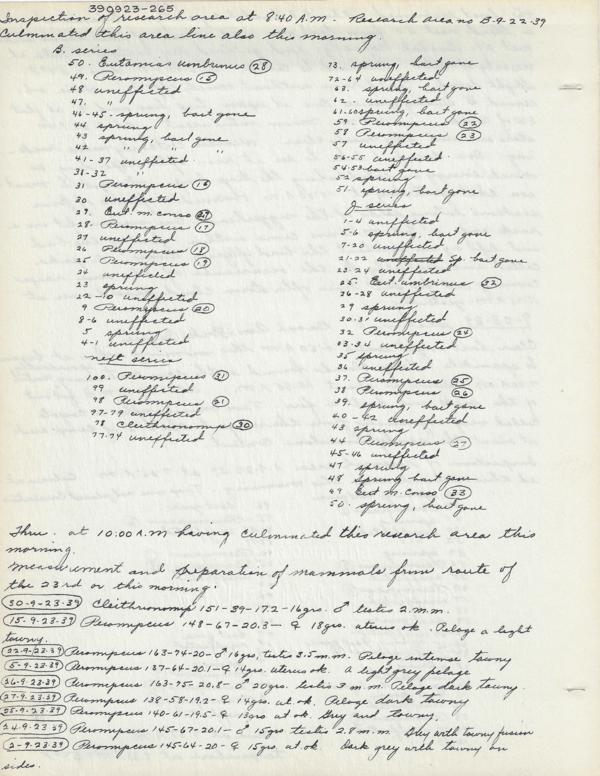 390923-265
Inspection of research area at 8:40 A.M. Research area no B-9-22-39
Culminated this area line also this morning.
B. series
50. Eutamias umbrinus (28)
49. Peromyscus (15)
48 uneffected
47. "
46-45- sprung, bait gone
44 sprung
43 sprung, bait gone
42 " " "
41-37 uneffected
"
31 Peromyscus (16)
30 uneffected
29. Eut. m. conso (29)
28. Peromyscus (17)
27 uneffected
26 Peromyscus (18)
25 Peromyscus (19)
24 uneffected
23 sprung
22-10 uneffected
9 Peromyscus (20)
8-6 uneffected
5 sprung
4-1 uneffected
next series
100. Peromyscus (21)
99 uneffected
98 Peromyscus (21)
97-79 uneffected
78 Cleithronomys (30)
77-74 uneffected
73. sprung, bait gone
72-64 uneffected
63. sprung, bait gone
62. uneffected
61-60 sprung, bait gone
59. Peromyscus (22)
58 Peromyscus (23)
57 uneffected
56-55 uneffected
54-53 bait gone
52 sprung
51. sprung, bait gone
J series
1-4 uneffected
5-6 sprung, bait gone
7-20 uneffected
21-22 uneffected Sp. bait gone
23-24 uneffected
25. Eut. umbrinus (32)
26-28 uneffected
29 sprung
30-31 uneffected
32 Peromyscus (24)
33-34 uneffected
35 sprung
36 uneffected
37. Peromyscus (25)
38 Peromyscus (26)
39. sprung, bait gone
40-42 uneffected
43 sprung
44 Peromyscus (27)
45-46 uneffected
47 sprung
48 Sprung bait gone
49 Eut m. conso (33)
50. sprung, bait gone
Thru. at 10:00 A.M having culminated this research area this
morning.
Measurement and preparation of mammals from route of
the 23rd or this morning.
(30-9-23-39) Cleithronomys 151-39-17.2-16grs. ♂ testis 2.m.m.
(15-9-23-39) Peromyscus 148-67-20.3- ♀ 18grs. uterus ok. Pelage a light
tawny.
(22-9-23-39) Peromyscus 163-74-20- ♂ 16grs, testis 3.5 m.m. Pelage intense tawny
(5-9-23-39) Peromyscus 137-64-20.1- ♀ 14grs. uterus ok. A light grey pelage
(26-9-23-39) Peromyscus 163-75-20.8- ♂ 20grs. testis 3 m.m. Pelage dark tawny.
(27-9-23-39) Peromyscus 138-58-19.2- ♀ 14grs. ut. ok. Pelage dark tawny
(25-9-23-39) Peromyscus 140-61-19.5- ♀ 13grs ut ok. Grey and tawny.
(24-9-23-39) Peromyscus 145-67-20.1- ♂ 15grs testis 2.8 m.m. Grey with tawny fusion
(2-9-23-39) Peromyscus 145-64-20- ♀ 15grs. ut. ok. Dark grey with tawny on
sides.